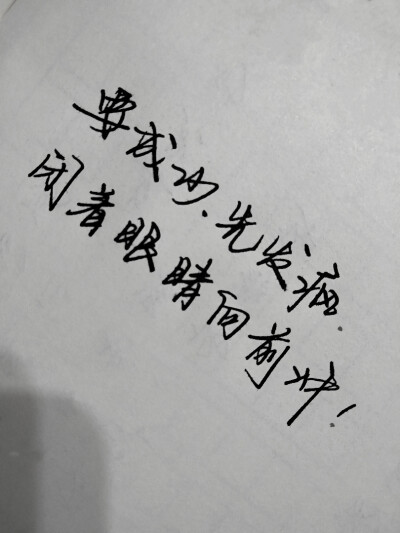 要成功、先发疯.
闭着眼睛向前冲!